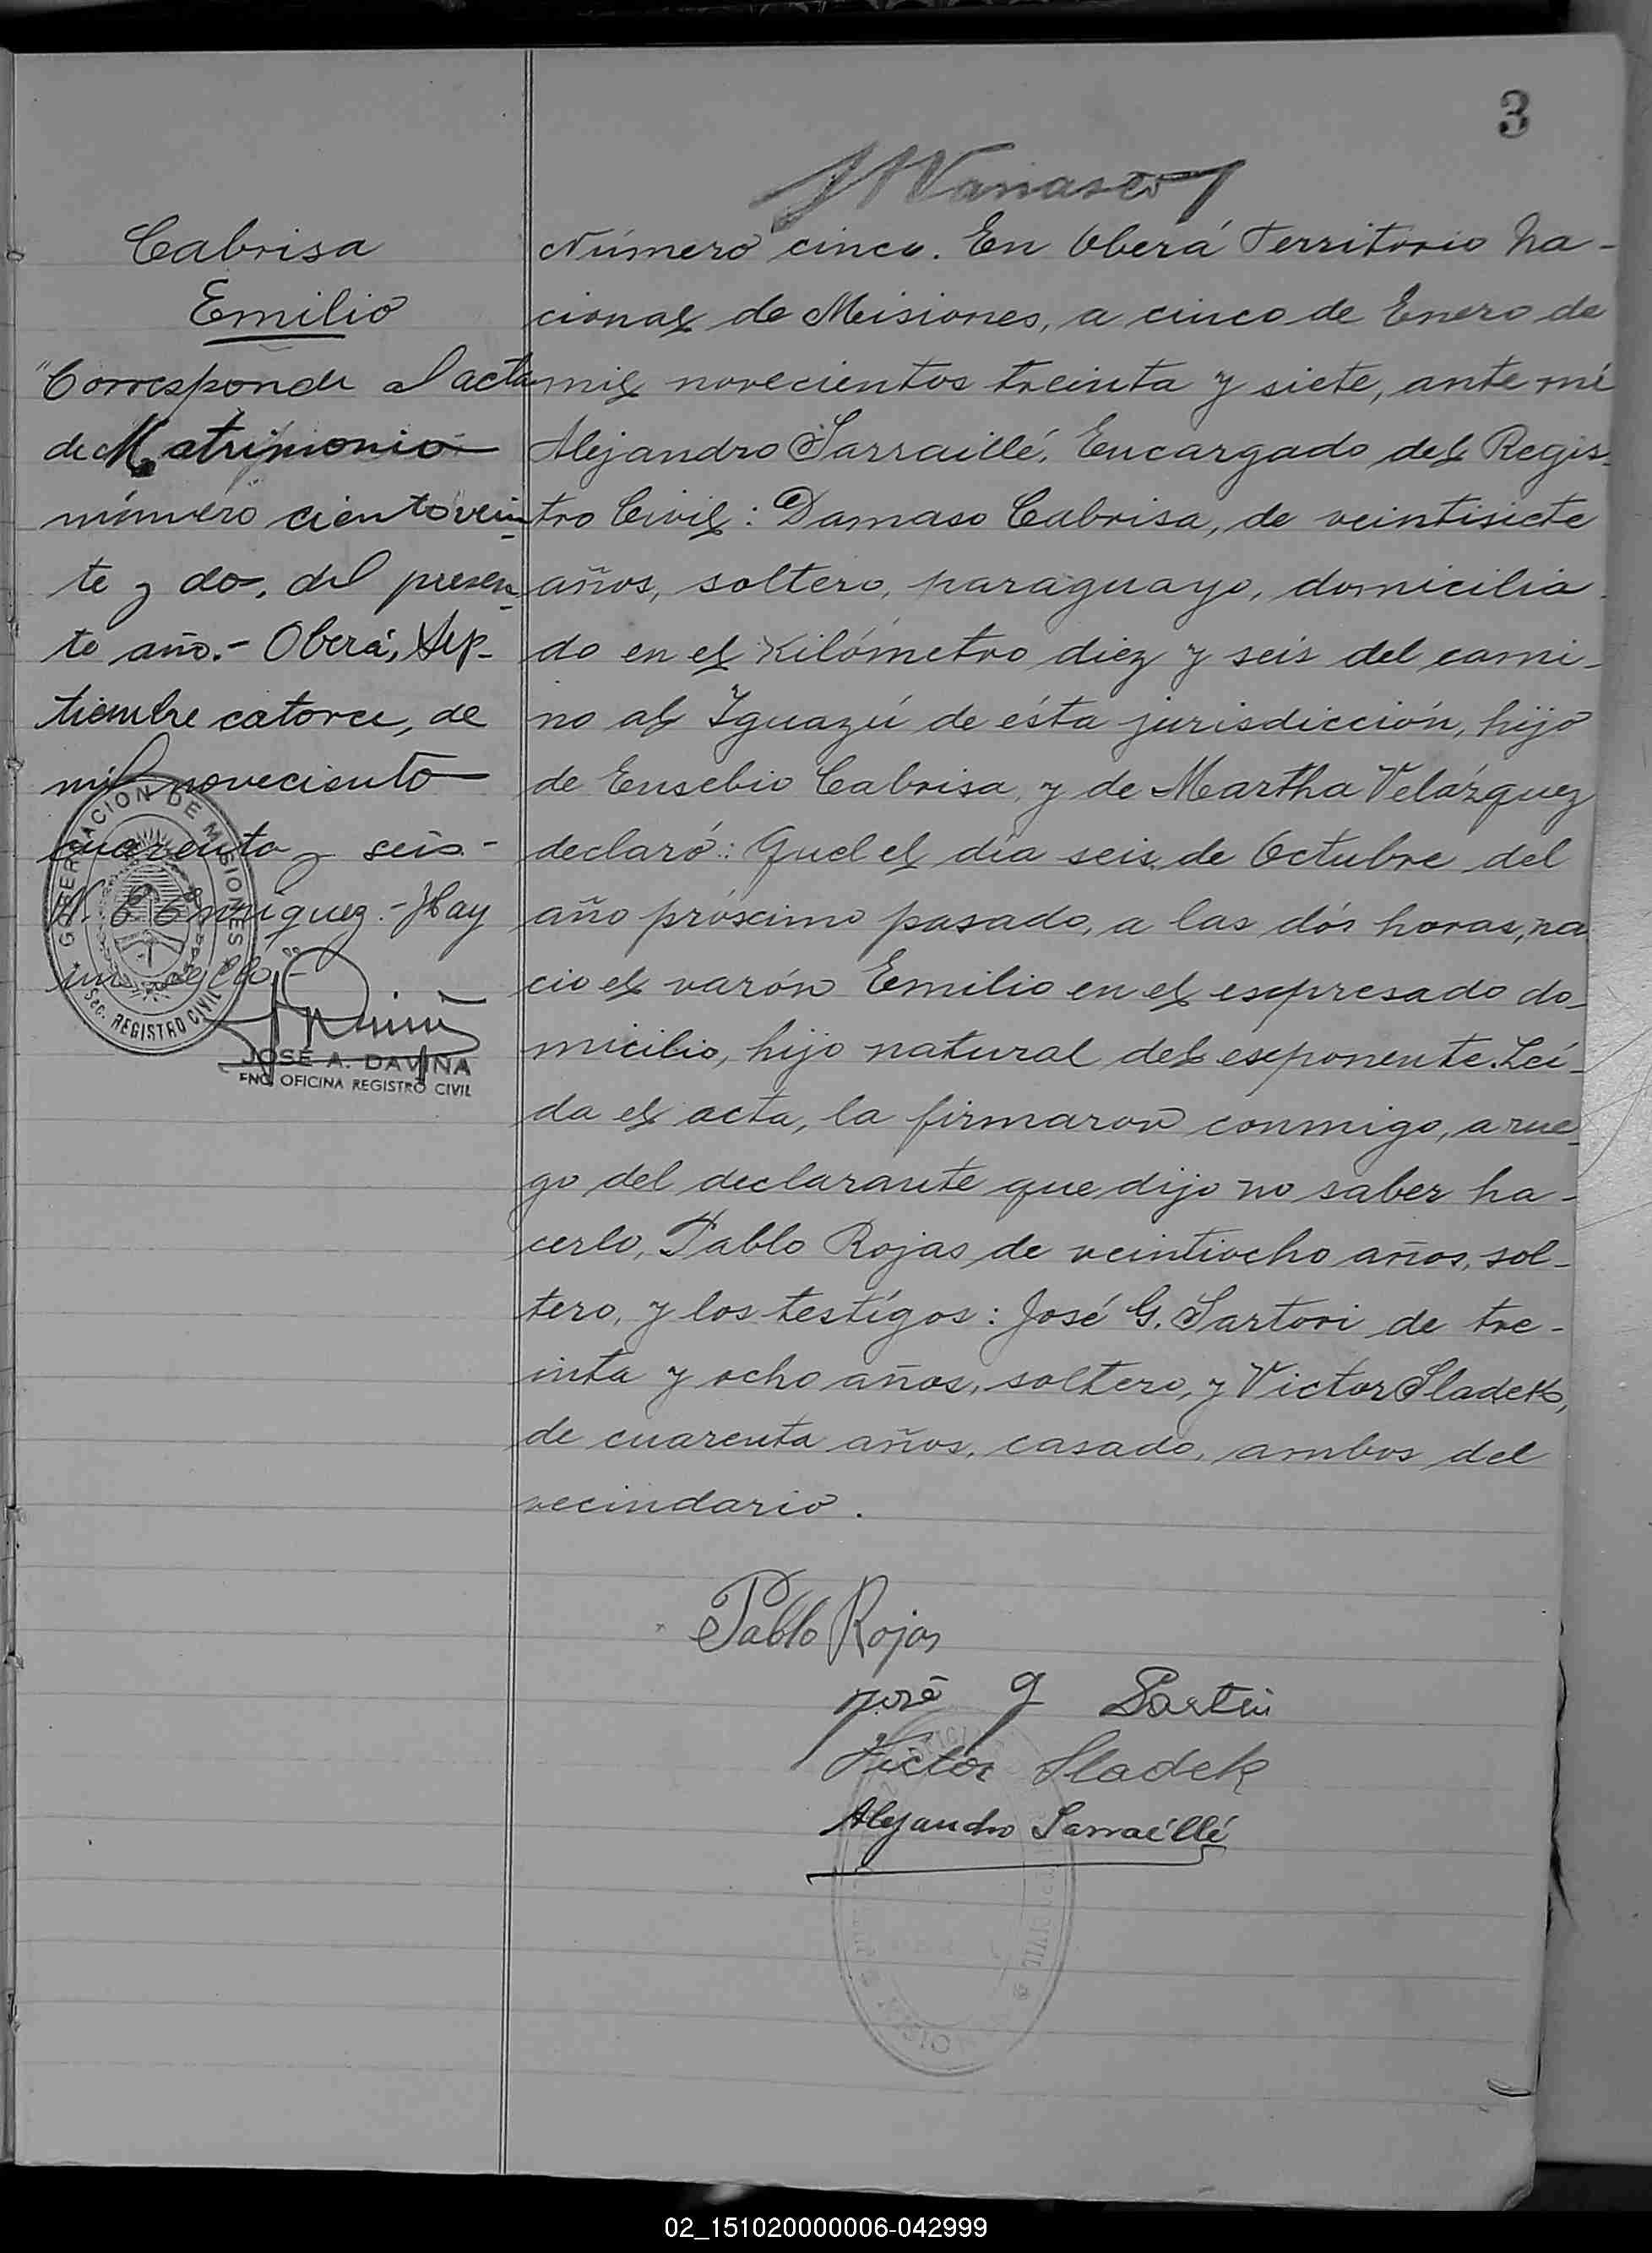 3
Cabrisa
Emilio
"Corresponde al acta
de Matrimonio
número ciento vein-
te y dos, del presen-
te año.- Oberá, Sep-
tiembre catorce, de
mil novecientos
cuarenta y seis-
Hay
un sello-
GOBERNACION DE MISIONES
Sec. REGISTRO CIVIL
JOSÉ A. DAVIÑA
ENC. OFICINA REGISTRO CIVIL
Número cinco. En Oberá Territorio Na-
cional de Misiones, a cinco de Enero de
mil novecientos treinta y siete, ante mí
Alejandro Sarraillé, Encargado del Regis-
tro Civil: Damaso Cabrisa, de veintisiete
años, soltero, paraguayo, domicilia-
do en el Kilómetro diez y seis del cami-
no al Iguazú de ésta jurisdicción, hijo
de Eusebio Cabrisa, y de Martha Velázquez
declaró: Quel el día seis de Octubre del
año próximo pasado, a las dós horas, na
cio el varón Emilio en el expresado do-
micilio, hijo natural del exponente. Leí-
da el acta, la firmaron conmigo, a rue-
go del declarante que dijo no saber ha-
cerlo, Pablo Rojas de veintiocho años, sol-
tero, y los testígos: José G. Sartori de tre-
inta y ocho años, soltero, y Victor Sladek,
de cuarenta años, casado, ambos del
vecindario.
Pablo Rojas
José G Sartori
Victor Sladek
Alejandro Sarraillé
02_151020000006-042999